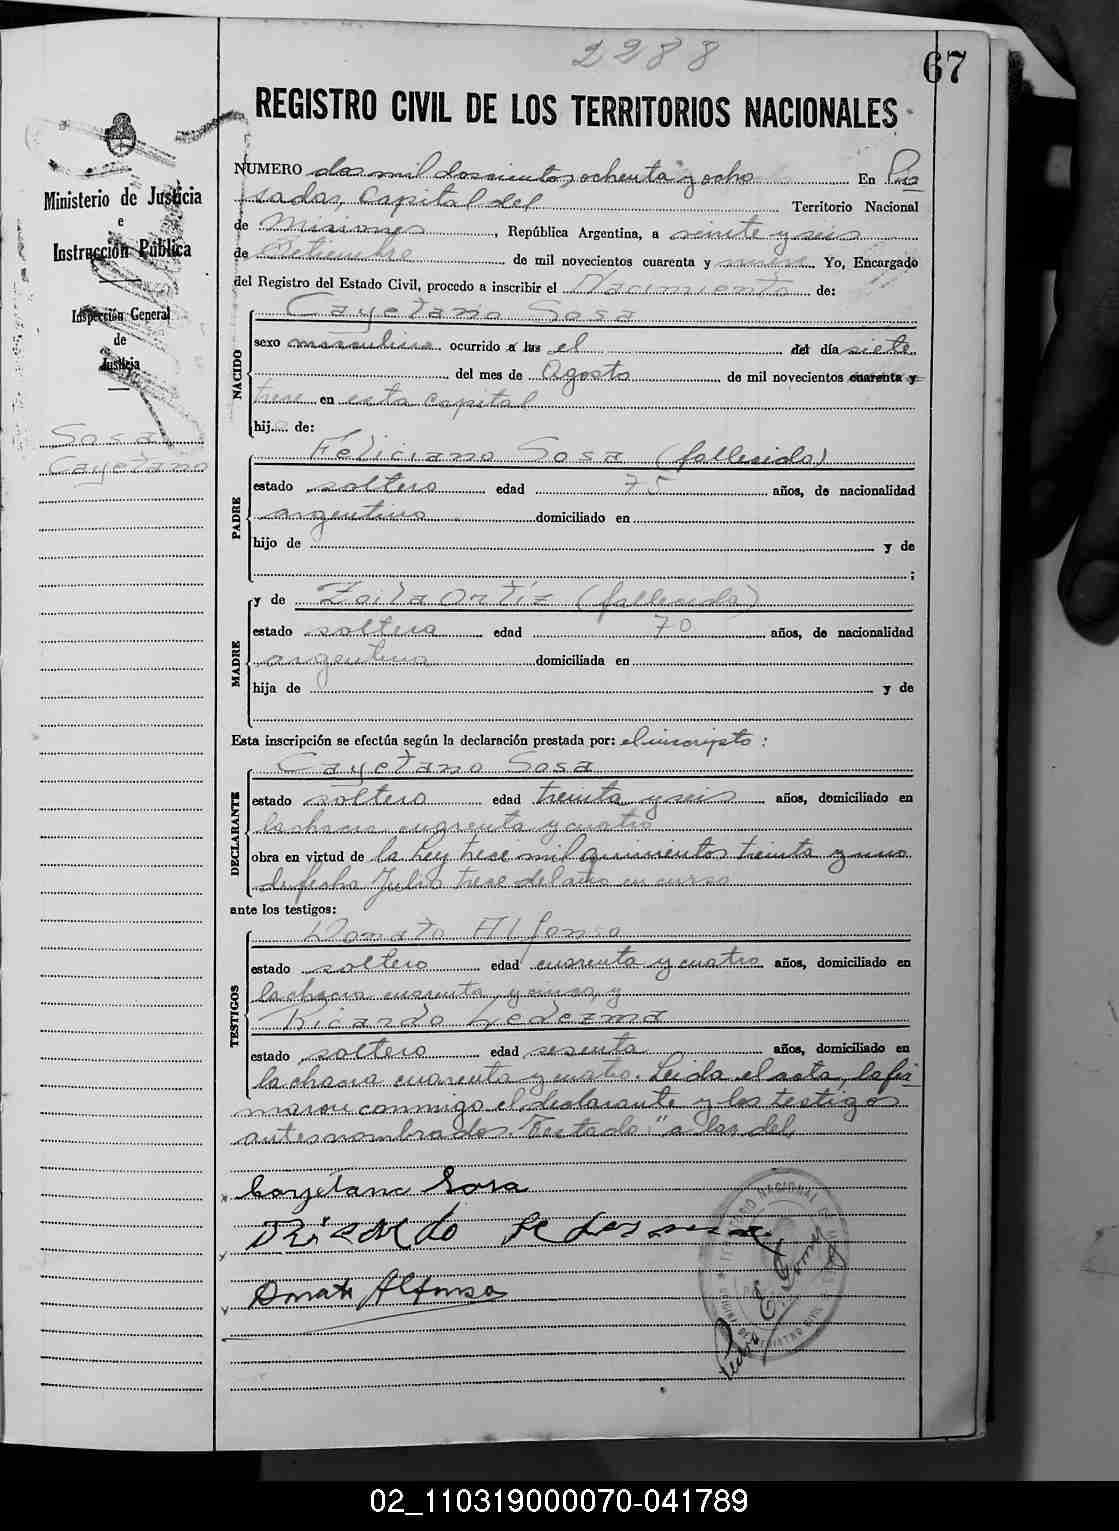 2288
67
REGISTRO CIVIL DE LOS TERRITORIOS NACIONALES
Ministerio de Justicia
e
Instrucción Pública
Inspección General
de
Justicia
Sosa
Cayetano
NUMERO dos mil doscientos ochenta y ocho En Po
sadas, Capital del Territorio Nacional
de Misiones, República Argentina, a veinte y seis
de Setiembre de mil novecientos cuarenta y nueve Yo, Encargado
del Registro del Estado Civil, procedo a inscribir el Nacimiento de:
NACIDO
Cayetano Sosa
sexo masculino ocurrido a las el del día siete
del mes de Agosto de mil novecientos cuarenta y
trece en esta capital
hijo de:
PADRE
Feliciano Sosa (fallecido)
estado soltero edad 75 años, de nacionalidad
argentino domiciliado en
hijo de y de
;
MADRE
y de Zoila Ortiz (fallecida)
estado soltera edad 70 años, de nacionalidad
argentina domiciliada en
hija de y de
Esta inscripción se efectúa según la declaración prestada por: el inscripto:
DECLARANTE
Cayetano Sosa
estado soltero edad treinta y seis años, domiciliado en
la chacra cuarenta y cuatro
obra en virtud de la Ley trece mil quinientos treinta y uno
de fecha Julio trece del año en curso
ante los testigos:
TESTIGOS
Donato Alfonso
estado soltero edad cuarenta y cuatro años, domiciliado en
la chacra cuarenta y cinco, y
Ricardo Ledezma
estado soltero edad sesenta años, domiciliado en
la chacra cuarenta y cuatro. Leida el acta, la fir
maron conmigo el declarante y los testigos
antes nombrados. Testado: "a las del
Cayetano Sosa
Ricardo Ledesma
Donato Alfonso
Pedro E. Gomez
02_110319000070-041789